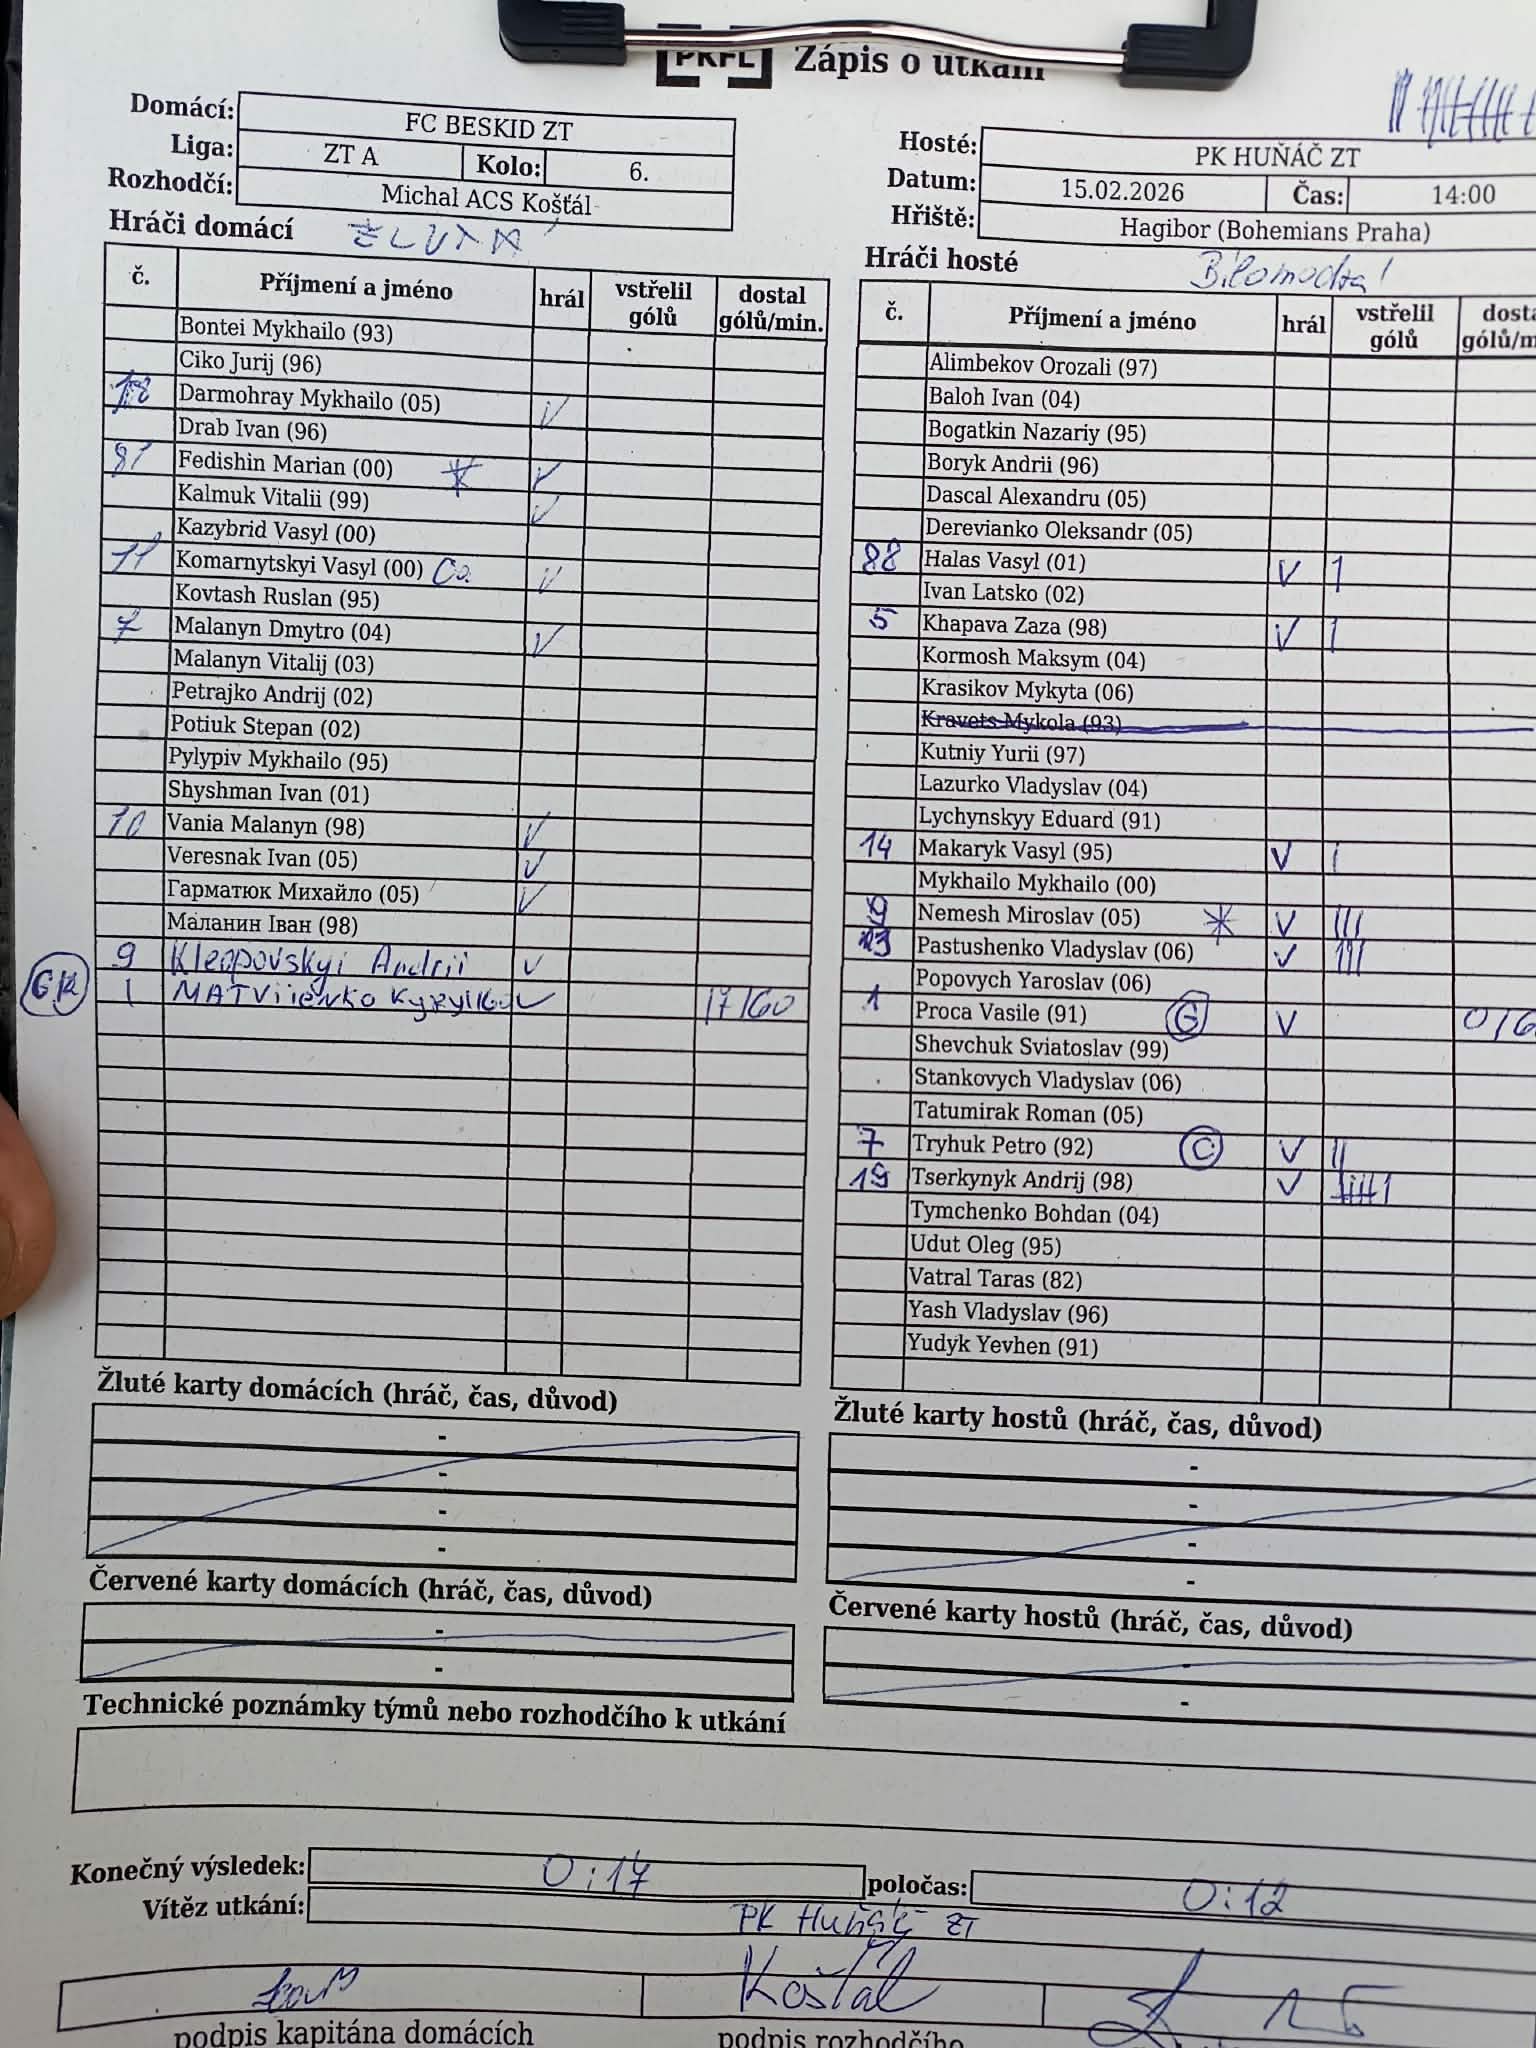 PKFL Zápis o utkání
Domácí: FC BESKID ZT
Liga: ZT A Kolo: 6.
Rozhodčí: Michal ACS Košťál
Hosté: PK HUŇÁČ ZT
Datum: 15.02.2026 Čas: 14:00
Hřiště: Hagibor (Bohemians Praha)
Hráči domácí ŽLUTÁ
č. Příjmení a jméno hrál vstřelil gólů dostal gólů/min.
Bontei Mykhailo (93)
Ciko Jurij (96)
18 Darmohray Mykhailo (05) V
Drab Ivan (96)
81 Fedishin Marian (00) * V
Kalmuk Vitalii (99) V
Kazybrid Vasyl (00)
11 Komarnytskyi Vasyl (00) V
Kovtash Ruslan (95)
7 Malanyn Dmytro (04) V
Malanyn Vitalij (03)
Petrajko Andrij (02)
Potiuk Stepan (02)
Pylypiv Mykhailo (95)
Shyshman Ivan (01)
10 Vania Malanyn (98) V
Veresnak Ivan (05) V
Гарматюк Михайло (05) V
Маланин Іван (98)
9 Kleopovskyi Andrii V
GK 1 MATViienko V 17/60
Hráči hosté
č. Příjmení a jméno hrál vstřelil gólů
Alimbekov Orozali (97)
Baloh Ivan (04)
Bogatkin Nazariy (95)
Boryk Andrii (96)
Dascal Alexandru (05)
Derevianko Oleksandr (05)
88 Halas Vasyl (01) V I
Ivan Latsko (02)
5 Khapava Zaza (98) V I
Kormosh Maksym (04)
Krasikov Mykyta (06)
Kravets Mykola (93)
Kutniy Yurii (97)
Lazurko Vladyslav (04)
Lychynskyy Eduard (91)
14 Makaryk Vasyl (95) V I
Mykhailo Mykhailo (00)
9 Nemesh Miroslav (05) * V III
Pastushenko Vladyslav (06) V III
Popovych Yaroslav (06)
1 Proca Vasile (91) G V
Shevchuk Sviatoslav (99)
Stankovych Vladyslav (06)
Tatumirak Roman (05)
7 Tryhuk Petro (92) C V II
19 Tserkynyk Andrij (98) V
Tymchenko Bohdan (04)
Udut Oleg (95)
Vatral Taras (82)
Yash Vladyslav (96)
Yudyk Yevhen (91)
Žluté karty domácích (hráč, čas, důvod)
-
-
-
-
Žluté karty hostů (hráč, čas, důvod)
-
-
-
-
Červené karty domácích (hráč, čas, důvod)
-
-
Červené karty hostů (hráč, čas, důvod)
-
-
Technické poznámky týmů nebo rozhodčího k utkání
Konečný výsledek: 0:17 poločas: 0:12
Vítěz utkání: PK Huňáč ZT
Košťál
podpis kapitána domácích podpis rozhodčího